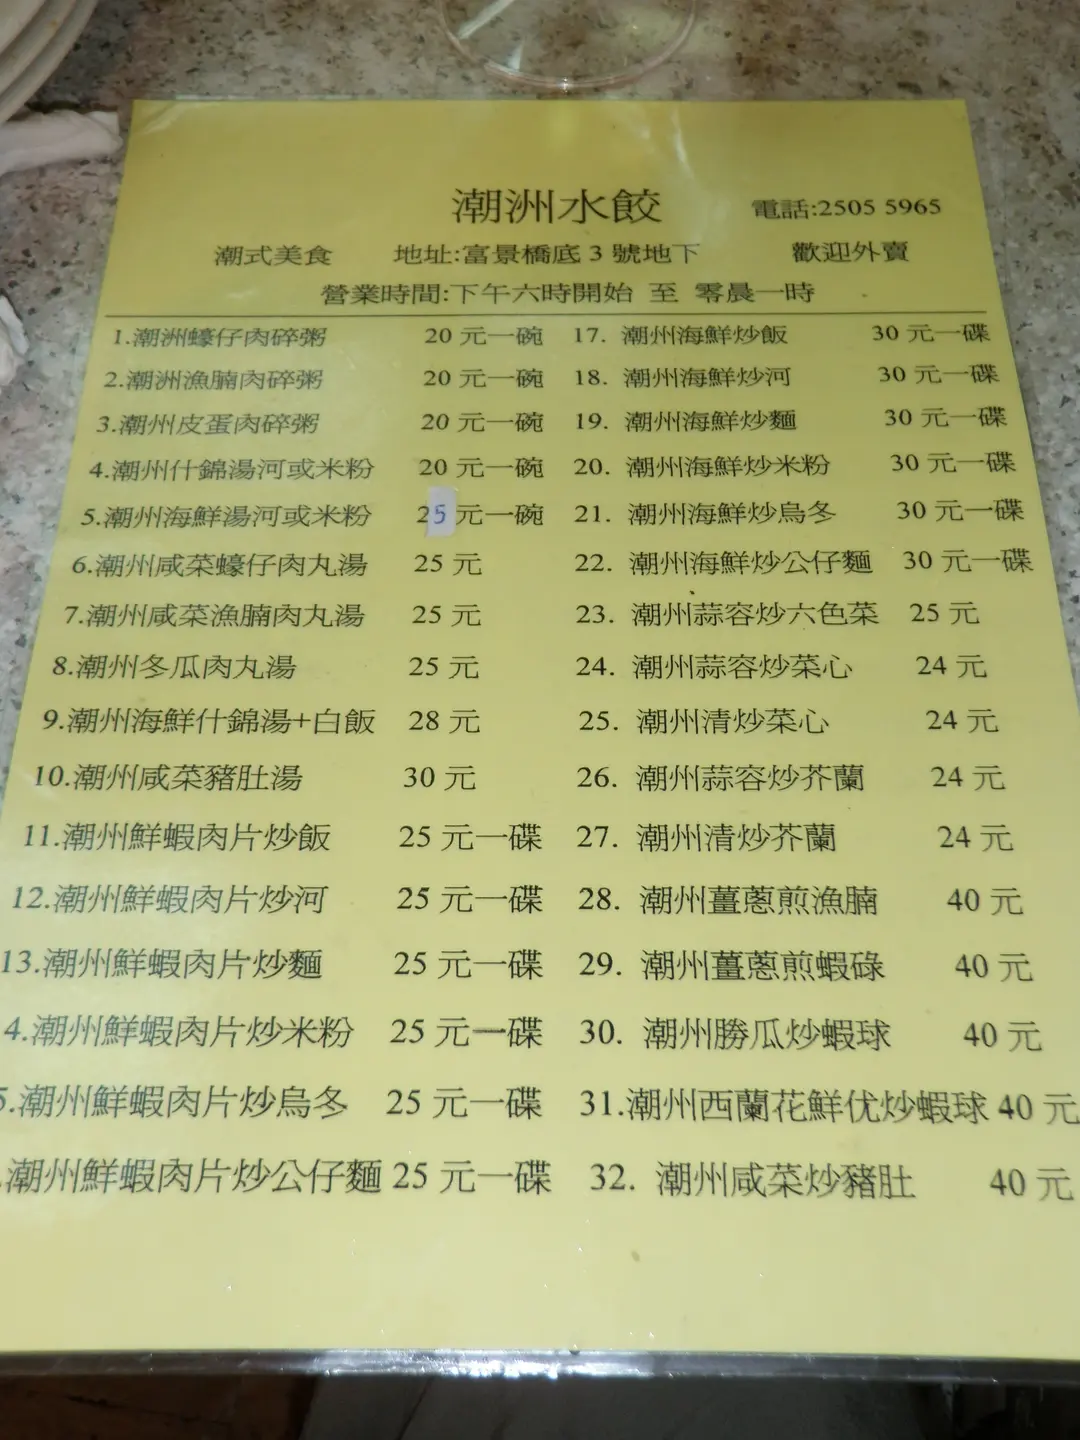 潮洲水餃
電話:2505 5965
潮式美食 地址:富景橋底 3 號地下 歡迎外賣
營業時間:下午六時開始 至 零晨一時
1.潮洲蠔仔肉碎粥 20 元一碗
2.潮洲漁腩肉碎粥 20 元一碗
3.潮州皮蛋肉碎粥 20 元一碗
4.潮州什錦湯河或米粉 20 元一碗
5.潮州海鮮湯河或米粉 25 元一碗
6.潮州咸菜蠔仔肉丸湯 25 元
7.潮州咸菜漁腩肉丸湯 25 元
8.潮州冬瓜肉丸湯 25 元
9.潮州海鮮什錦湯+白飯 28 元
10.潮州咸菜豬肚湯 30 元
11.潮州鮮蝦肉片炒飯 25 元一碟
12.潮州鮮蝦肉片炒河 25 元一碟
13.潮州鮮蝦肉片炒麵 25 元一碟
4.潮州鮮蝦肉片炒米粉 25 元一碟
5.潮州鮮蝦肉片炒烏冬 25 元一碟
.潮州鮮蝦肉片炒公仔麵 25 元一碟
17. 潮州海鮮炒飯 30 元一碟
18. 潮州海鮮炒河 30 元一碟
19. 潮州海鮮炒麵 30 元一碟
20. 潮州海鮮炒米粉 30 元一碟
21. 潮州海鮮炒烏冬 30 元一碟
22. 潮州海鮮炒公仔麵 30 元一碟
23. 潮州蒜容炒六色菜 25 元
24. 潮州蒜容炒菜心 24 元
25. 潮州清炒菜心 24 元
26. 潮州蒜容炒芥蘭 24 元
27. 潮州清炒芥蘭 24 元
28. 潮州薑蔥煎漁腩 40 元
29. 潮州薑蔥煎蝦碌 40 元
30. 潮州勝瓜炒蝦球 40 元
31.潮州西蘭花鮮优炒蝦球 40 元
32. 潮州咸菜炒豬肚 40 元